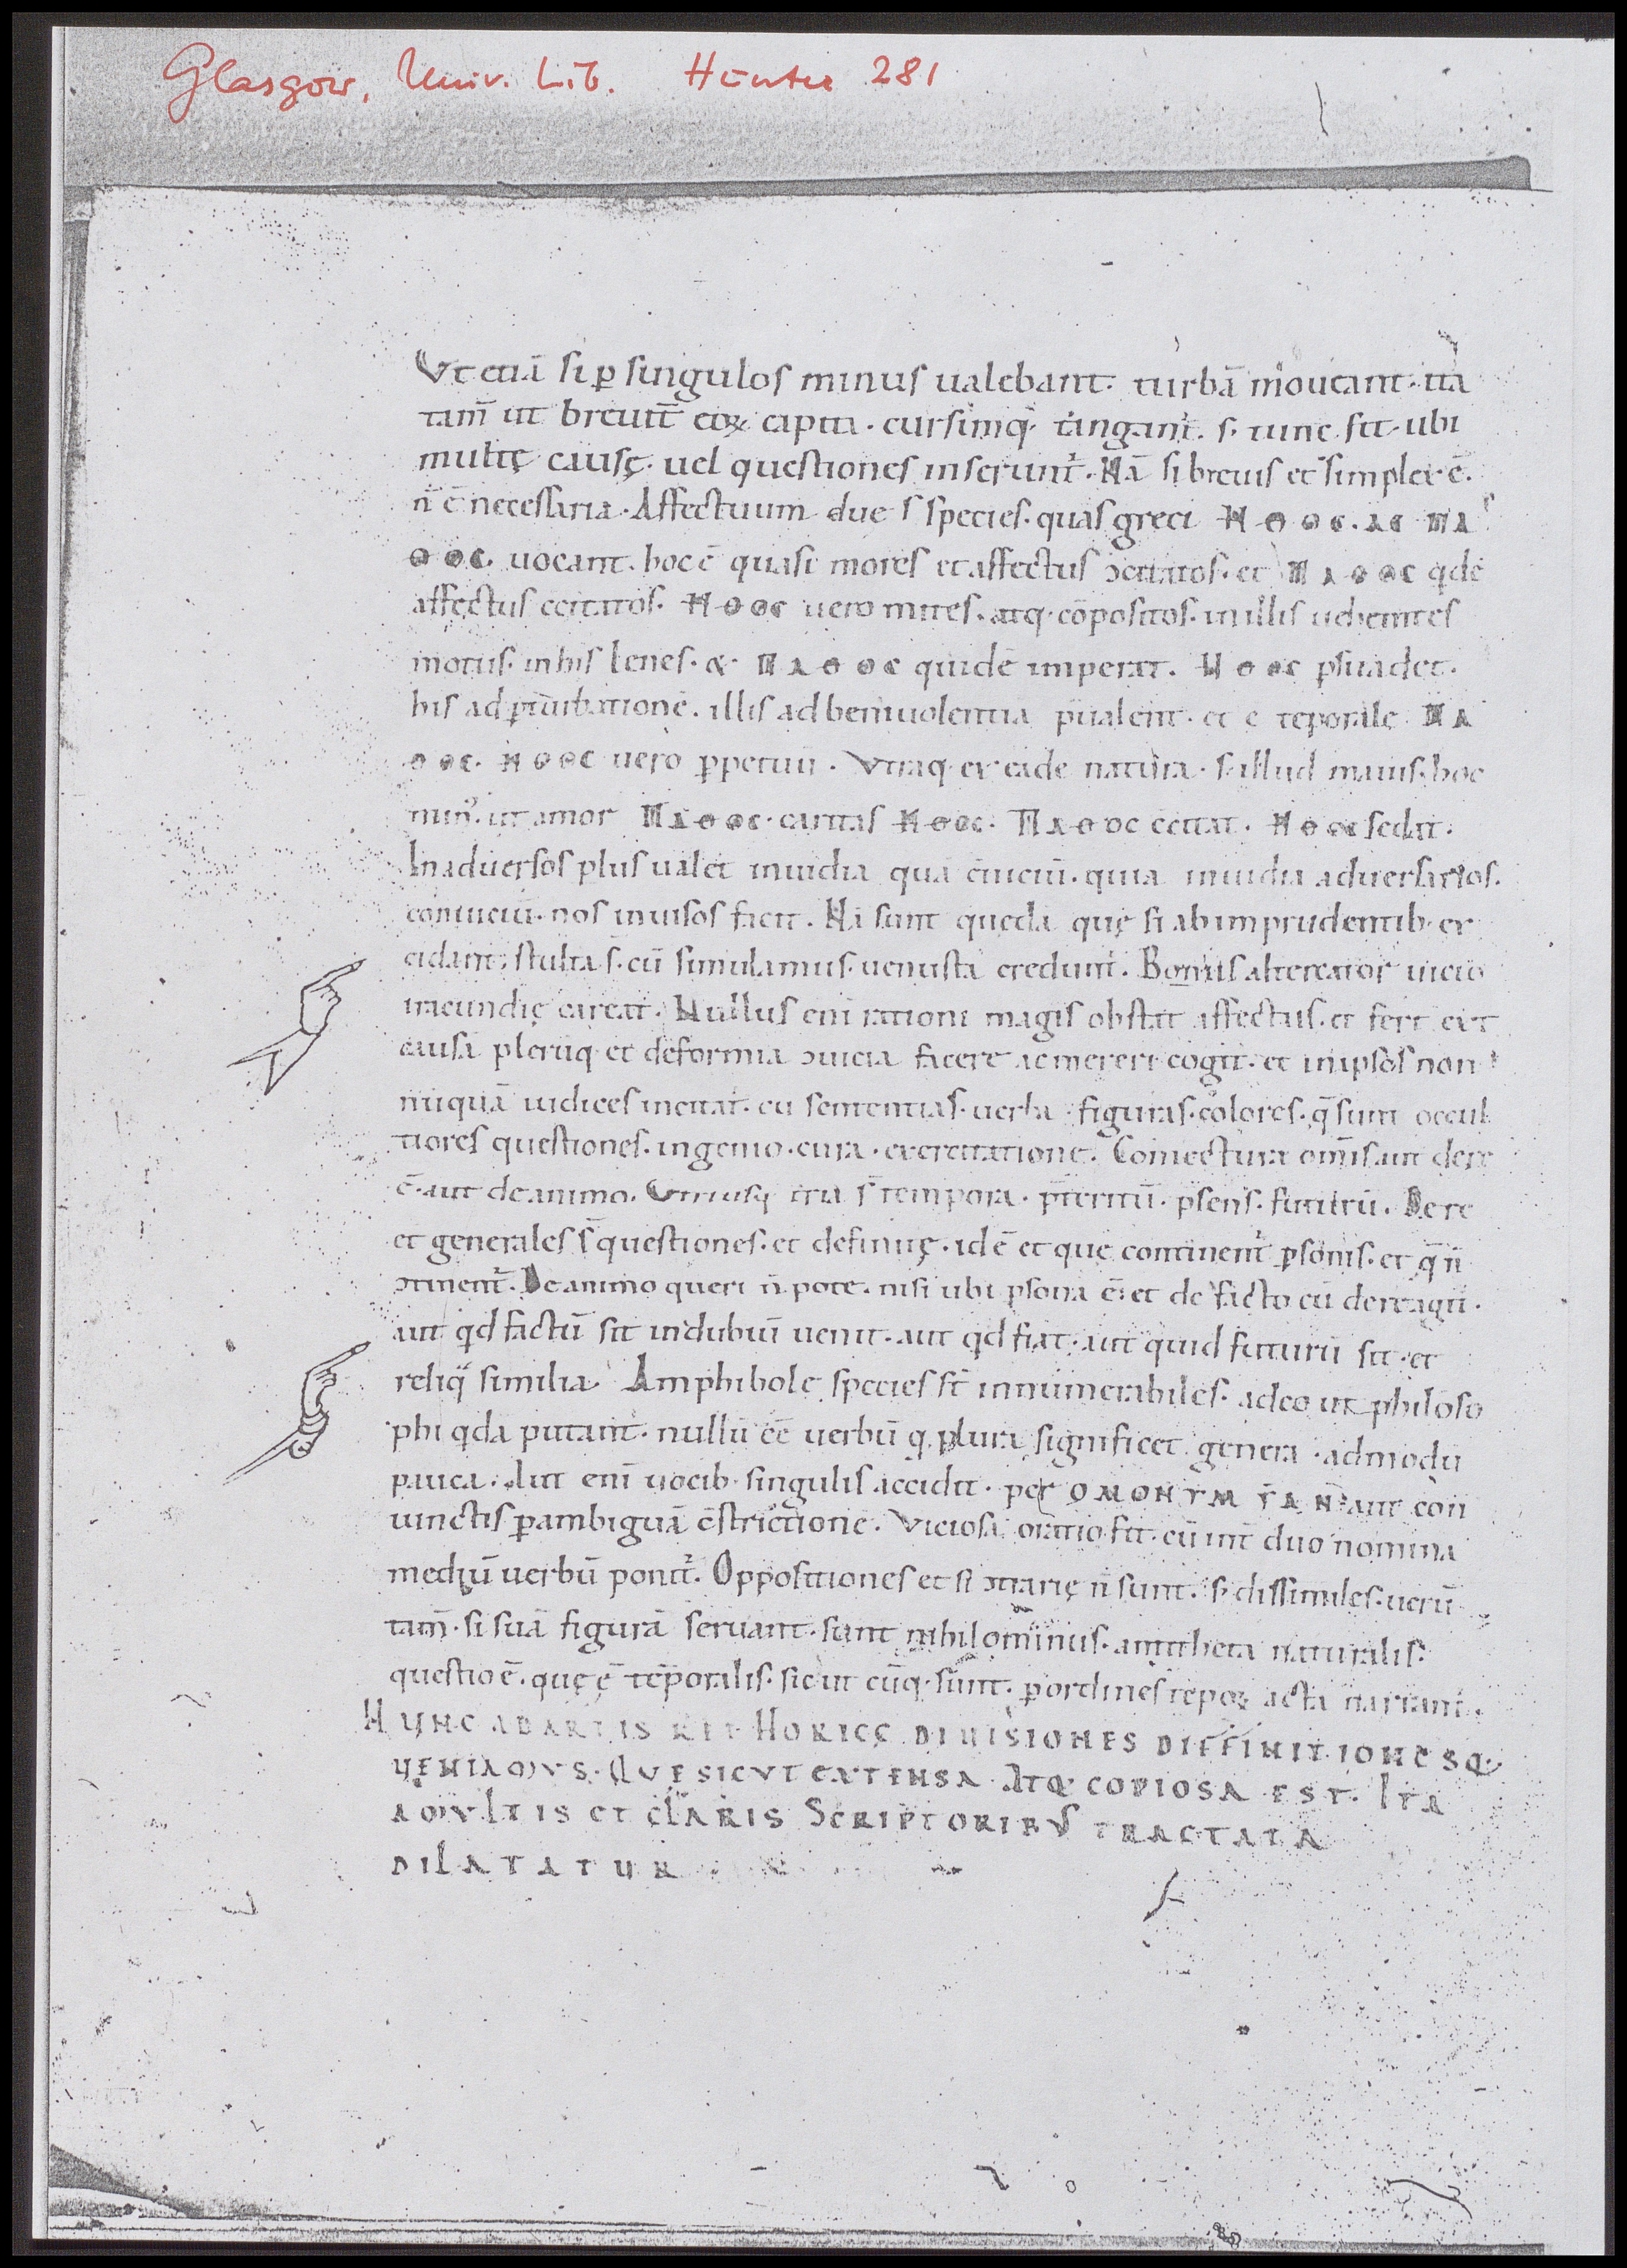 Glasgow, Univ. Lib. Hunter 281
Vt etiā si ꝑ singulos minus ualebant. turbā moueant. ita
tam̄ ut breuit̄ eoꝝ capita. cursimq; tangant̄. s; tunc fit. ubi
multę causę. uel questiones inserunt̄. Nā si breuis et simplex ē.
n̄ ē necessaria. Affectuum due s̄ species. quas greci ΗΘΟC. ac ΠΑ
ΘΟC. uocant. hoc ē quasi mores et affectus ↄcitatos. et ΠΑΘΟC qdē
affectus ccitatos. ΗΘΟC uero mites. atq; cōpositos. in illis uehem̄tes
motus. in his lenes. & ΠΑΘΟC quidē imperat. ΗΘΟC ꝑsuadet.
his ad ꝑturbationē. illis ad beniuolentiā p̄ualent. et ē tēporale ΠΑ
ΘΟC. ΗΘΟC uero ꝑpetuū. Vtraq; ex eadē natura. s; illud maius. hoc
min᾽. ut amor ΠΑΘΟC. caritas ΗΘΟC. ΠΑΘΟC ccitat. ΗΘΟC sedat.
In aduersos plus ualet inuidia quā ↄuiciū. quia inuidia aduersarios.
conuiciū. nos inuisos facit. Nā sunt quedā quę si ab imprudentib; ex
cidant, stulta s̄. cū simulamus. uenusta credunt̄. Bonus altercator uicio
iracundię careat. Nullus eni rationi magis obstat affectus. et fert ext̄
causā plerūq; et deformia ↄuicia facere ac mereri cogit. et in ipsos non
nūquā iudices incitat. eū sententias. uerba. figuras. colores. q̄ sunt occul
tiores questiones. ingenio. cura. exercitatione. Coniectura omīs aut de re
ē. aut de animo. Vtriusq; tria s̄ tempora. p̄teritū. p̄sens. futurū. De re
et generales s̄ questiones. et definitę. id ē et que continent̄ ꝑsonis. et q̄ n̄
ↄtinent̄. De animo queri n̄ pote. nisi ubi ꝑsona ē. et de facto cū de re agit̄.
aut qd factū sit in dubiū uenit. aut qd fiat. aut quid futurū sit. et
reliq̄ similia. Amphibole species sn̄t innumerabiles. adeo ut philoso
phi qdā putant. nullū ēē uerbū q̄ plura significet genera. admodū
pauca. Aut eni uocib; singulis accidit. per ΟΜΟΝΥΜΙΑΝ aut con
iunctis ꝑ ambiguā ↄstrictionē. Viciosa oratio fit. cū int̄ duo nomina
mediū uerbū ponit̄. Oppositiones et si ↄtrarię n̄ sunt. s; dissimiles. uerū
tam̄. si suā figurā seruant. sunt nihil ominus. antitheta naturalis.
questio ē. quę ē tēporalis. sicut cūq; sunt. ꝑ ordines tēpoꝝ acta narrant̄.
HVNC AD ARTIS RETHORICĘ DIVISIONES DIFFINITIONESQ;
VENIAMVS. QVE SICVT EXTENSA ATQ; COPIOSA EST. ITA
A MVLTIS ET CLARIS SCRIPTORIBVS TRACTATA
DILATATUR